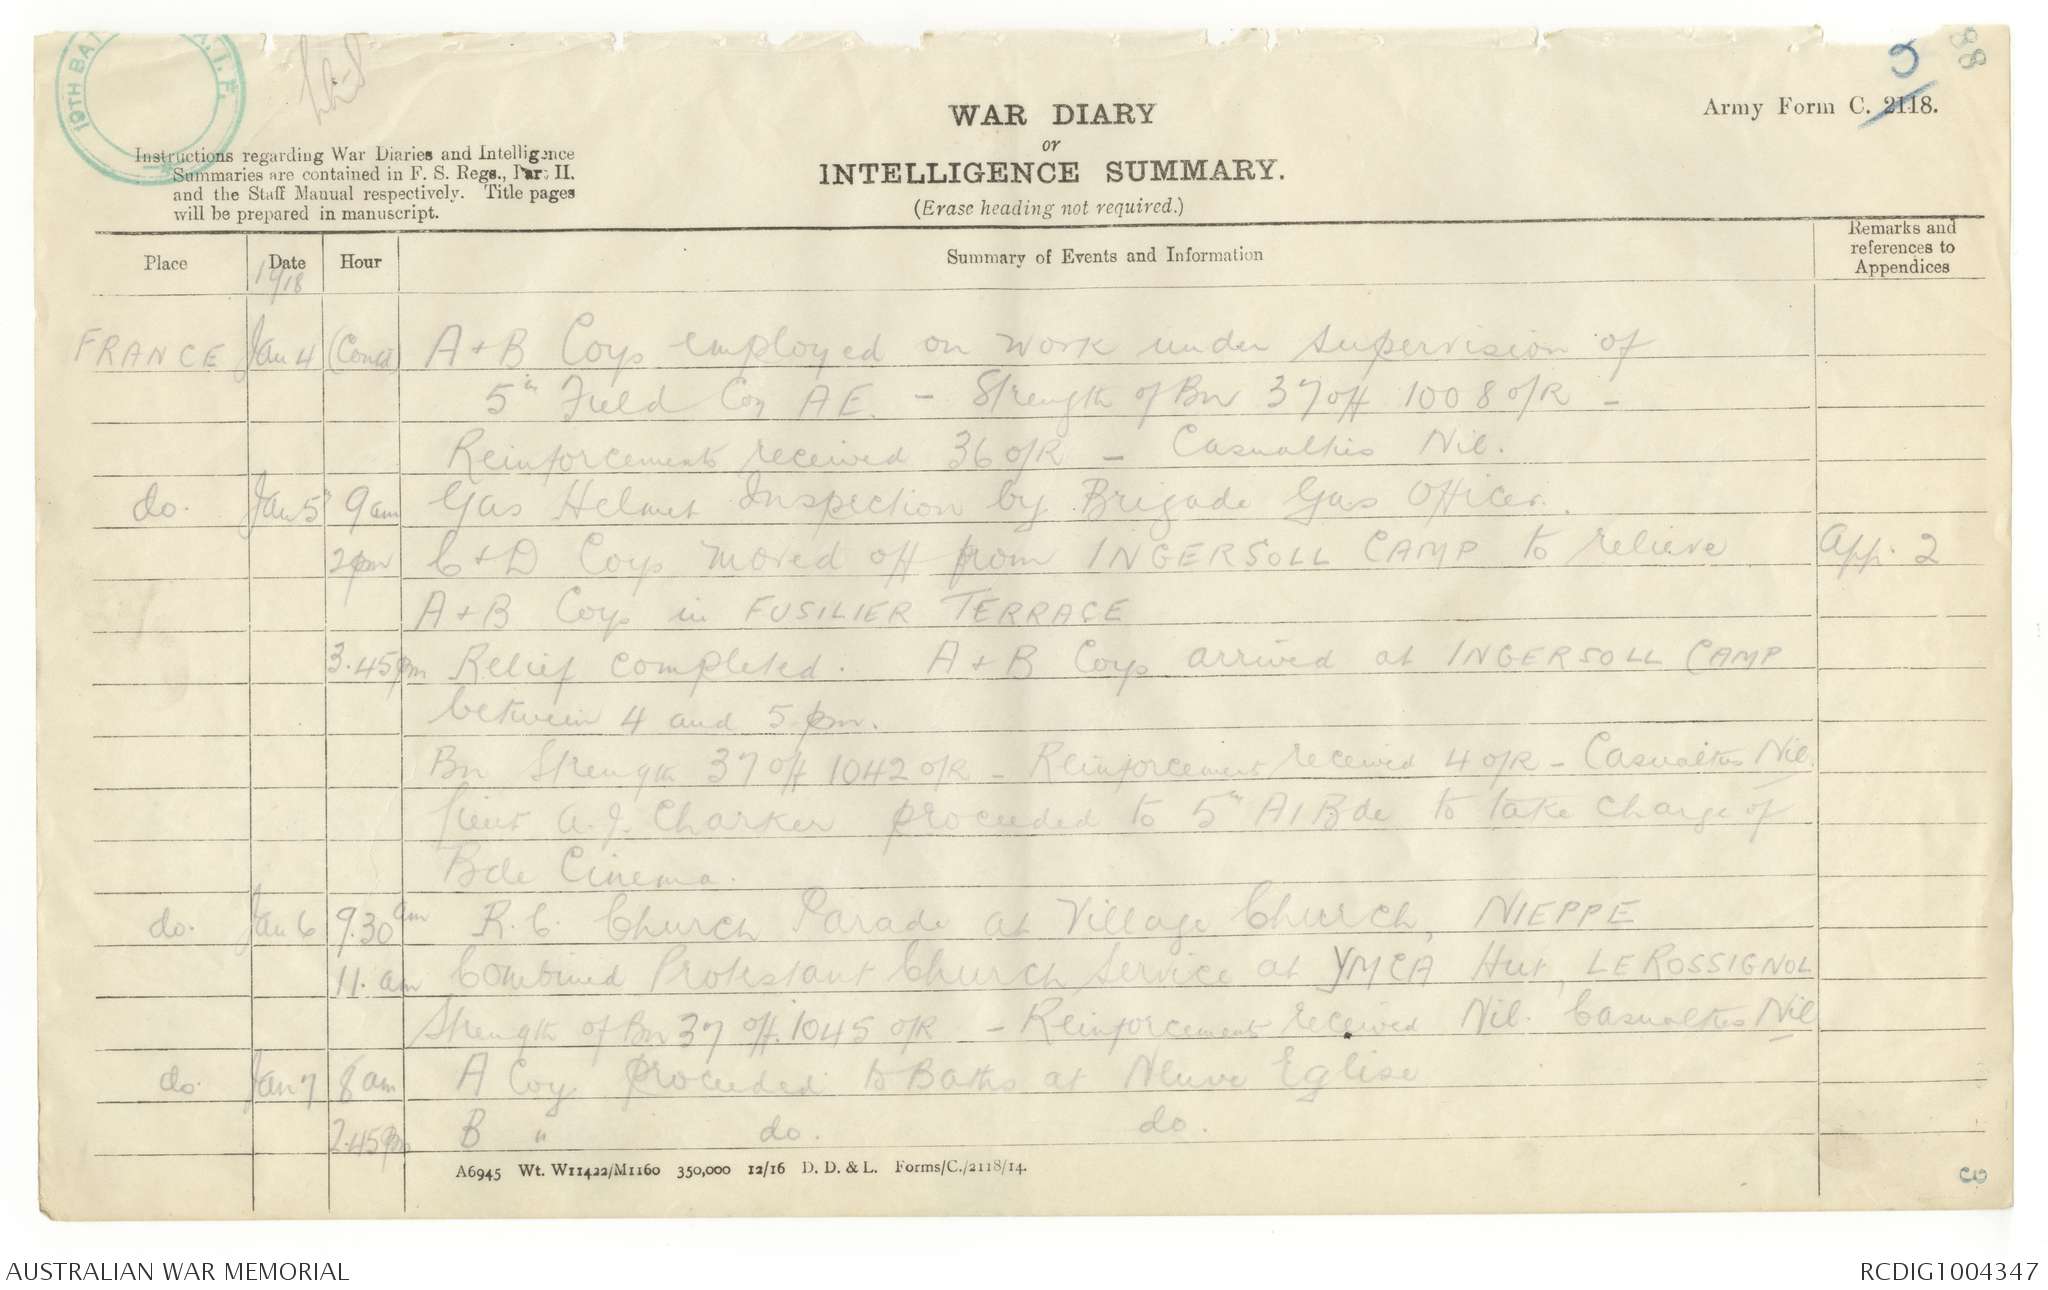 19TH BAT A.I.F.
88
WAR DIARY
or
INTELLIGENCE SUMMARY.
(Erase heading not required.)
Army Form C. 2118.
Instructions regarding War Diaries and Intelligence
Summaries are contained in F. S. Regs., Part II.
and the Staff Manual respectively. Title pages
will be prepared in manuscript.
Place Date Hour Summary of Events and Information Remarks and references to Appendices
1918
FRANCE Jan 4 (Contd) A + B Coys employed on work under supervision of
5th Field Coy A E. - Strength of Bn 37 off 1008 o/R -
Reinforcements received 36 o/R - Casualties Nil.
do. Jan 5 9am Gas Helmet Inspection by Brigade Gas Officer.
2pm C + D Coys moved off from INGERSOLL CAMP to relieve App. 2
A + B Coys in FUSILIER TERRACE
3.45pm Relief completed. A + B Coys arrived at INGERSOLL CAMP
between 4 and 5 pm.
Bn Strength 37 off 1042 o/R - Reinforcements received 4 o/R - Casualties Nil.
Lieut A. J. Charker proceeded to 5th A I Bde to take charge of
Bde Cinema.
do. Jan 6 9.30 am R. C. Church Parade at Village Church, NIEPPE
11. am Combined Protestant Church Service at YMCA Hut, LE ROSSIGNOL
Strength of Bn 37 off. 1045 o/R - Reinforcements received Nil. Casualties Nil
do. Jan 7 8 am A Coy. proceeded to Baths at Neuve Eglise
2.45pm B " do. do.
A6945 Wt. W11422/M1160 350,000 12/16 D. D. & L. Forms/C./2118/14.
3
AUSTRALIAN WAR MEMORIAL
RCDIG1004347